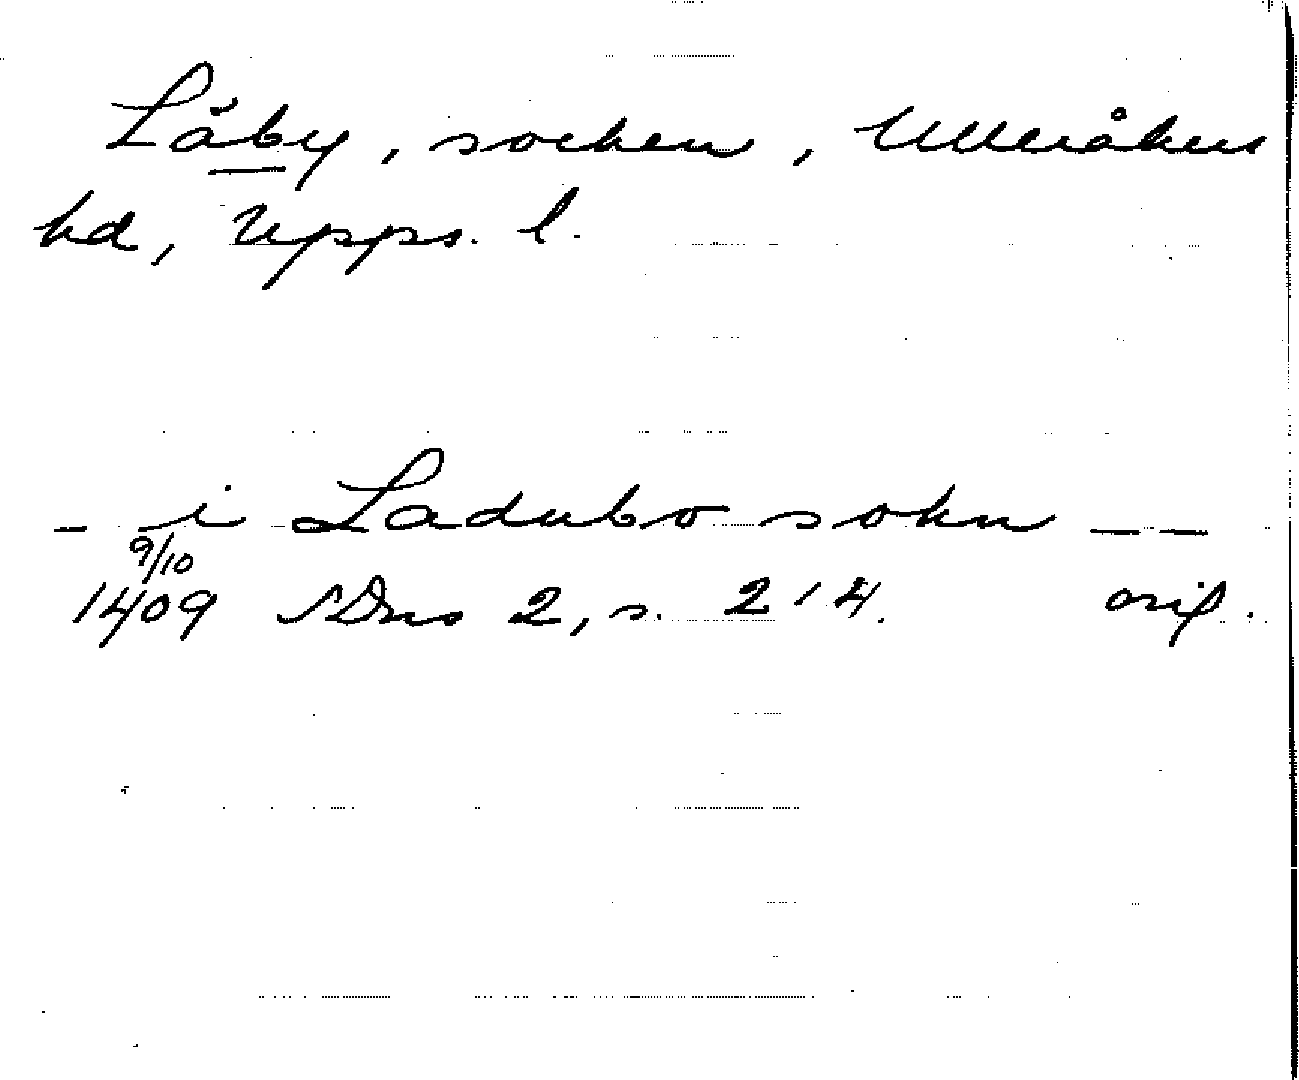 Låby, socken, Ulleråkers
hd, Upps. l.
- i Ladubo sokn — —
9/10
1409 SDns 2, s. 214. orig.